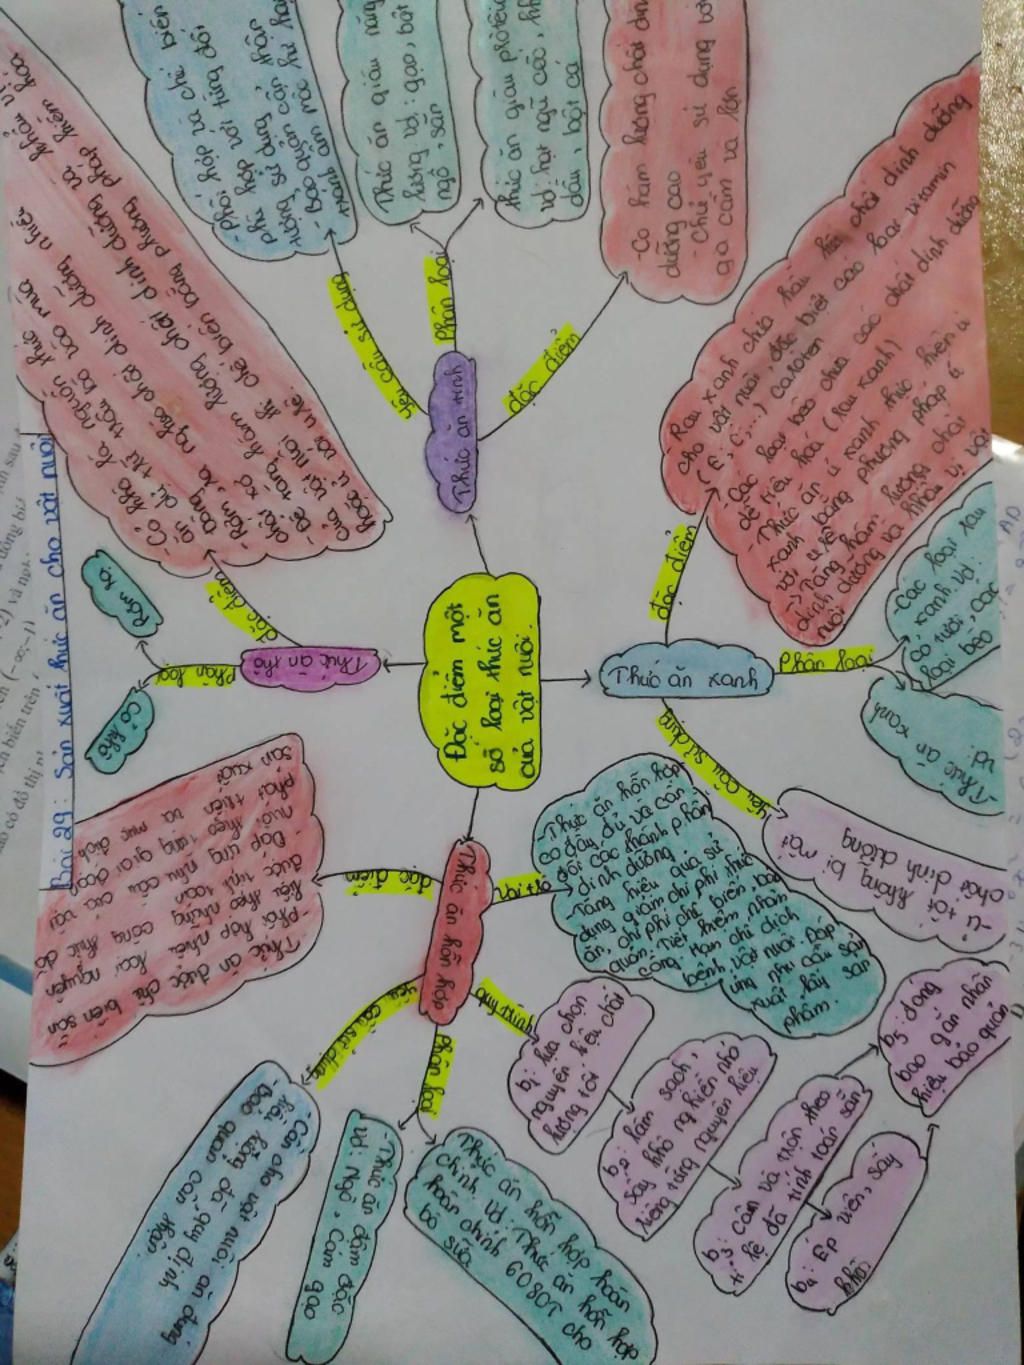 Bài 29: Sản xuất thức ăn cho vật nuôi
Đặc điểm một
số loại thức ăn
của vật nuôi.
Thức ăn tinh
yêu cầu sử dụng
- Phối hợp và chế biến
phù hợp với từng đối
tượng sử dụng
- Bảo quản cẩn thận
tránh ẩm mốc
phân loại
Thức ăn giàu năng
lượng vd: gạo, bột
ngô, sắn
thức ăn giàu protein
vd hạt ngũ cốc,
đậu, bột cá
đặc điểm
- Có hàm lượng chất dinh
dưỡng cao
- Chủ yếu sử dụng
gà cầm và lợn
Thức ăn xanh
đặc điểm
- Rau xanh chứa hầu hết chất dinh dưỡng
cho vật nuôi, đặc biệt các loại vitamin
(E, C, ...) caroten
- Các loại bèo chứa các chất dinh dưỡng
dễ tiêu hoá (rau xanh)
- Thức ăn ủ xanh thức hiện ủ
xanh bằng phương pháp ủ
với u rê
=> Tăng hàm lượng chất
dinh dưỡng và khẩu vị vật
nuôi
phân loại
- Các loại rau
xanh vd:
cỏ tươi, các
loại bèo
- Thức ăn xanh
vd:
yêu cầu sử dụng
- ủ tốt
không bị mất
chất dinh dưỡng
Thức ăn hỗn hợp
vai trò
- Thức ăn hỗn hợp
có đầy đủ và cân
đối các thành phần
dinh dưỡng
- Tăng hiệu quả sử
dụng giảm chi phí thức
ăn, chi phí chế biến, bảo
quản. Tiết kiệm, nhân
công. Hạn chế dịch
bệnh, vật nuôi. Đáp
ứng nhu cầu sản
xuất lấy sản
phẩm
quy trình
b1: lựa chọn
nguyên liệu chất
lượng tốt
b2: làm sạch,
sấy khô nghiền nhỏ
riêng từng nguyên liệu
b3: cân và trộn theo
tỉ lệ đã tính toán sẵn
b4: Ép viên, sấy
khô
b5: đóng
bao gắn nhãn
hiệu bảo quản
phân loại
Thức ăn hỗn hợp hoàn
chỉnh. Vd: Thức ăn hỗn hợp
hoàn chỉnh 6080T cho
bò sữa
- Thức ăn đậm đặc
vd: Ngô, Cám gạo
yêu cầu sử dụng
- Cần cho vật nuôi ăn đúng
đã quy định
- Bảo quản cẩn thận
đặc điểm
Thức ăn được chế biến sẵn
- Phối hợp nhiều loại nguyên
liệu theo những công thức đã
được tính toán
- Đáp ứng nhu cầu của vật
nuôi theo từng giai đoạn
phát triển và mục đích
sản xuất
Thức ăn thô
phân loại
Cỏ khô
Rơm rạ
đặc điểm
- Cỏ khô là nguồn thức
ăn dự trữ trâu bò vào mùa
đông
- Rơm, rạ nghèo chất dinh dưỡng nhiều
chất xơ
- Để tăng hàm lượng chất dinh dưỡng và khẩu vị
của vật nuôi thì chế biến bằng phương pháp kiềm hóa
hoặc ủ với u rê.